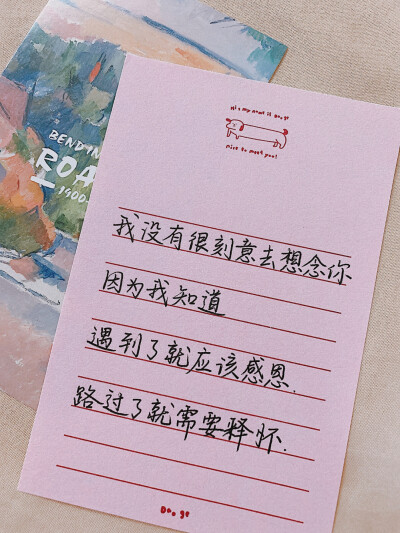 BEND IN
ROA
1900-
Hi ~ my name is Doo ge
nice to meet you!
我没有很刻意去想念你
因为我知道
遇到了就应该感恩.
路过了就需要释怀.
Doo ge